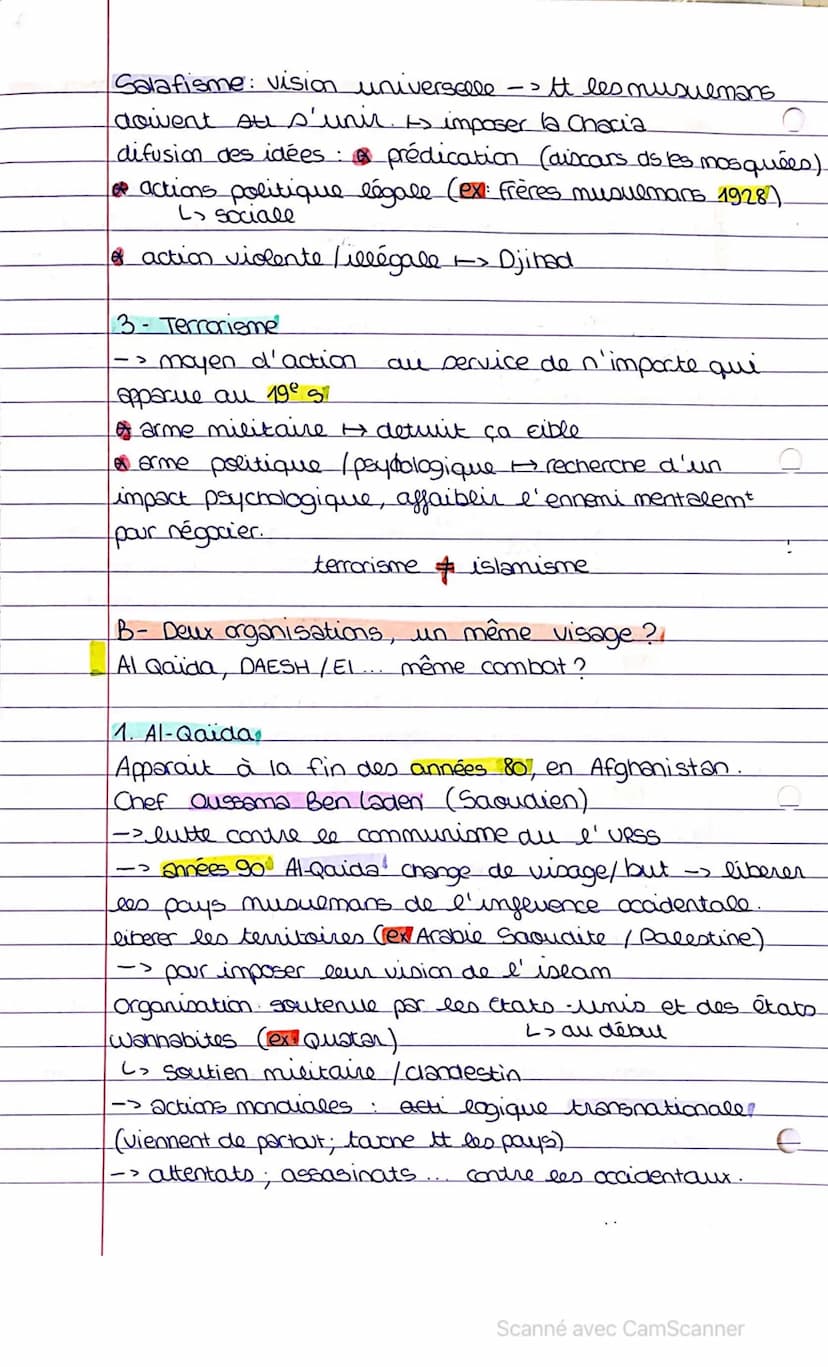 Salafisme: vision universelle -> tt les musulmans
doivent s'unir. ↦ imposer la Charia
difusion des idées : * prédication (discars ds les mosquées)
* actions politique légale (ex: Frères musulmans 1928)
↳ sociale
* action violente / illégale ↦ Djihad
3 - Terrorisme
-> moyen d'action au service de n'importe qui
apparue au 19e s
* arme militaire ↦ detruit ça cible
* arme politique / psychologique ↦ recherche d'un
impact psychologique, affaiblir l'ennemi mentalemt
pour négocier.
terrorisme ≠ islamisme
B- Deux organisations, un même visage ?
Al Qaida, DAESH / EI ... même combat ?
1. Al-Qaïda
Apparait à la fin des années 80, en Afghanistan.
Chef Oussama Ben Laden (Saoudien)
-> lutte contre le communisme du l'URSS
-> années 90 Al-Qaida change de visage / but -> liberer
les pays musulmans de l'infuence occidentale.
liberer les territoires (ex Arabie Saoudite / Palestine)
-> pour imposer leur vision de l'islam
Organisation soutenue par les Etats-unis et des états
Wahhabites (ex: Quatar) ↳ au début
↳ soutien militaire / clandestin
-> actions mondiales : acti logique transnationale
(viennent de partout ; tarne tt les pays)
-> attentats ; assasinats ... contre les occidentaux.
Scanné avec CamScanner